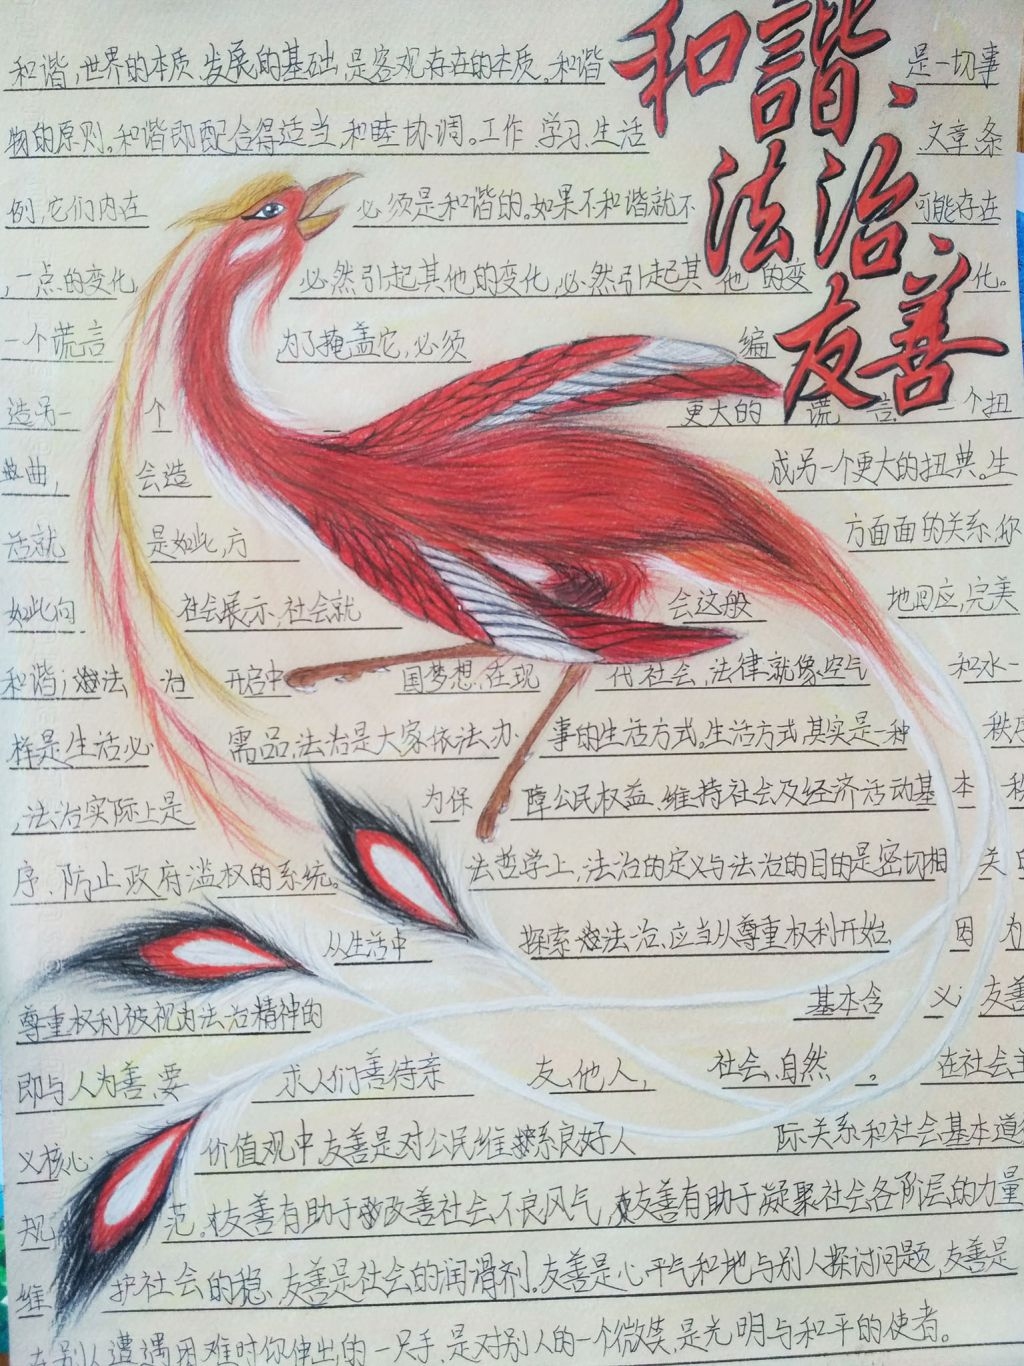 和諧、
法治、
友善
和谐,世界的本质,发展的基础,是客观存在的本质。和谐 是一切事
物的原则。和谐即配合得适当,和睦协调。工作、学习、生活、文章、条
例,它们内在 必须是和谐的。如果不和谐就不 可能存在
,一点的变化, 必然引起其他的变化,必然引起其 他 的变 化。
一个谎言 为了掩盖它,必须 编
造另一 个 更大的 谎 言。 一个扭
曲, 会造 成另一个更大的扭典。生
活就 是如此,方 方面面的关系,你
如此向 社会展示,社会就 会这般 地回应,完美
和谐;法 治 开启中 国梦想,在现 代社会,法律就像空气 和水一
样是生活必 需品,法治是大家依法办 事的生活方式。生活方式其实是一种 秩
,法治实际上是 为保 障公民权益、维持社会及经济活动基 本 秩
序、防止政府滥权的系统。 法哲学上,法治的定义与法治的目的是密切相 关
从生活中 探索法治,应当从尊重权利开始, 因 为
尊重权利被视为法治精神的 基本含 义;友善
即与人为善,要 求人们善待亲 友、他人, 社会、自然 。 在社会主
义核心 价值观中友善是对公民维系良好人 际关系和社会基本道
规 范。友善有助于改善社会不良风气,友善有助于凝聚社会各阶层的力量
维 护社会的稳、友善是社会的润滑剂。友善是心平气和地与别人探讨问题,友善是
在别人遭遇困难时你伸出的一只手,是对别人的一个微笑,是光明与和平的使者。